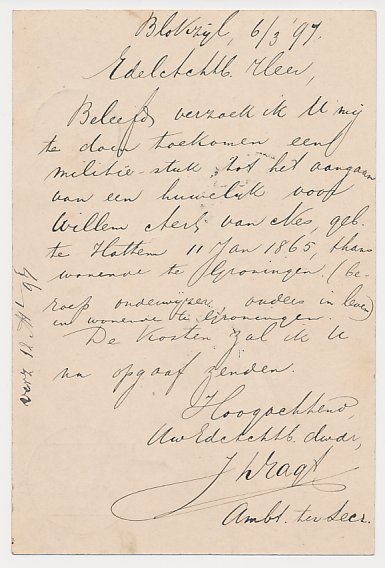 Blokzijl, 6/3 '97.
Edelachtb. Heer,
Beleefd verzoek ik U mij
te doen toekomen een
militie-stuk, tot het aangaan
van een huwelijk voor
Willem Aert van Nes, geb.
te Hattem 11 Jan 1865, thans
wonende te Groningen. (be-
roep onderwijzer, ouders in leven
en wonende te Groningen.
De Kosten zal ik U
na opgaaf zenden.
Hoogachtend,
Uw Edelachtb. dwdr,
J Vragt
Ambt. ter Secr.
verz 12